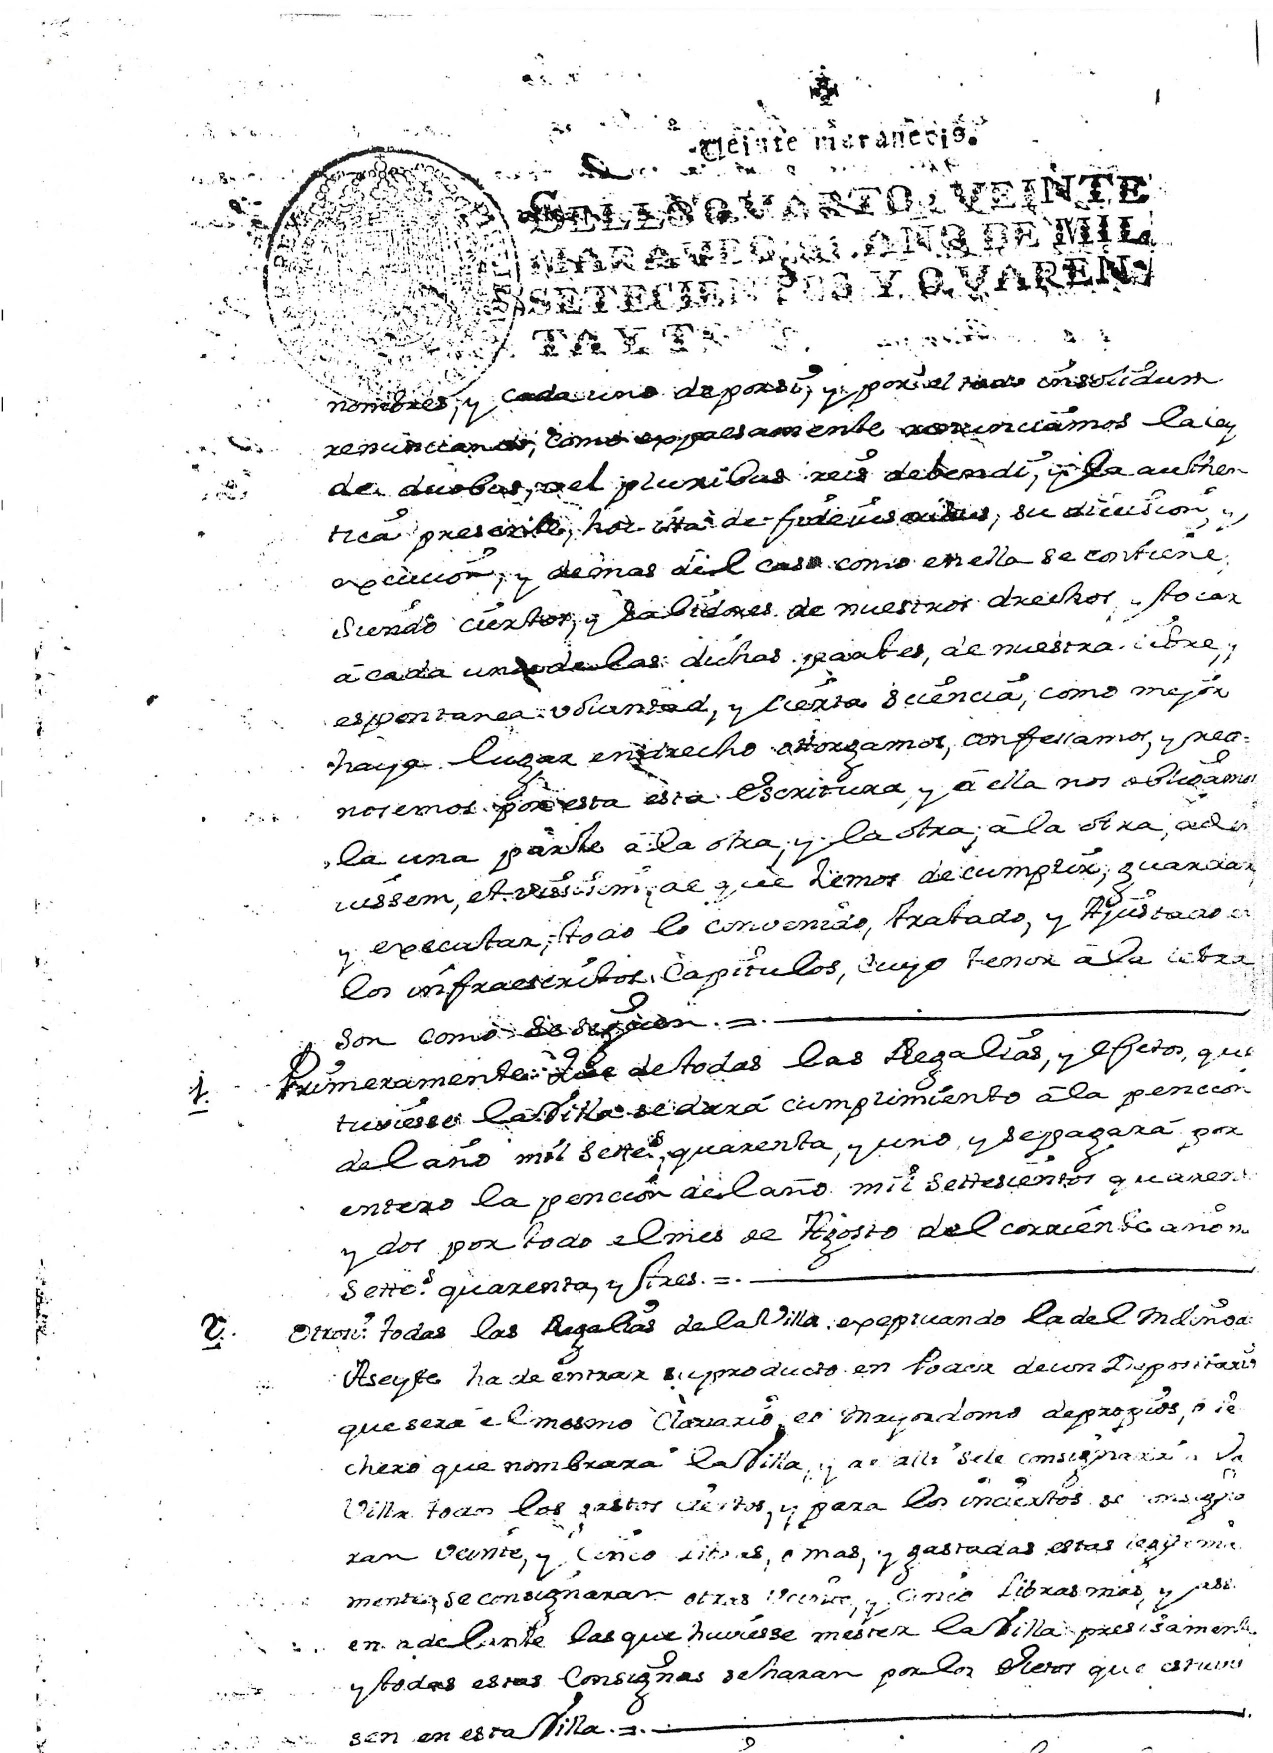 Veinte maravedis.
SELLO QVARTO, VEINTE
MARAVEDIS, AÑO DE MIL
SETECIENTOS Y QVAREN-
TA Y T
nombres, y cada uno de por si, y por el todo insolidum
renunciando, como expresamente renunciamos la ley
de duobus, vel pluribus reis debendi, y la authen
tica presente, hoc ita de fideiusoribus, su dicision, y
excucion, y demas del caso como en ella se contiene
siendo ciertos, y sabidores de nuestros drechos, y tocar
â cada una de las dichas partes, de nuestra libre, y
espontanea voluntad, y cierta sciencia, como mejor
haya lugar en drecho otorgamos, confessamos, y reco-
nosemos por esta esta Escritura, y â ella nos obligamos
la una parte â la otra, y la otra, â la otra, ad in
uissem, et vissisim, de que hemos de cumplir, guardar,
y executar, todo lo convenido, tratado, y Ajustado en
los infraescritos Capitulos, cuyo tenor â la letra
son como se siguen. =
1. Primeramente: Que de todas las Regalias, y efetos, que
tuviesse la Villa se dará cumplimiento â la pencion
del año mil Settes. quarenta, y uno, y se pagará por
entero la pencion del año mil Settesientos quaren
y dos por todo el mes de Agosto del corriente año m
Settes. quarenta, y tres. =
2. Otrosi: todas las Regalias de la Villa, exeptuando la del Molino de
Aseyte ha de entrar su producto en Poder de un Depositario
que será el mesmo Clavario, o Mayordomo de propios, o
chero que nombrará la Villa, y de alli se le consignará a la
Villa todos los gastos ciertos, y para los inciertos se consigna
ran veinte, y Cinco Libras, o mas, y gastadas estas legitima
mente, se consignaran otras veinte, y Cinco Libras mas, y assi
en adelante las que huviesse mester la Villa presisamente
y todas estas Consignas se haran por los Electos que estuvi
sen en esta Villa. =